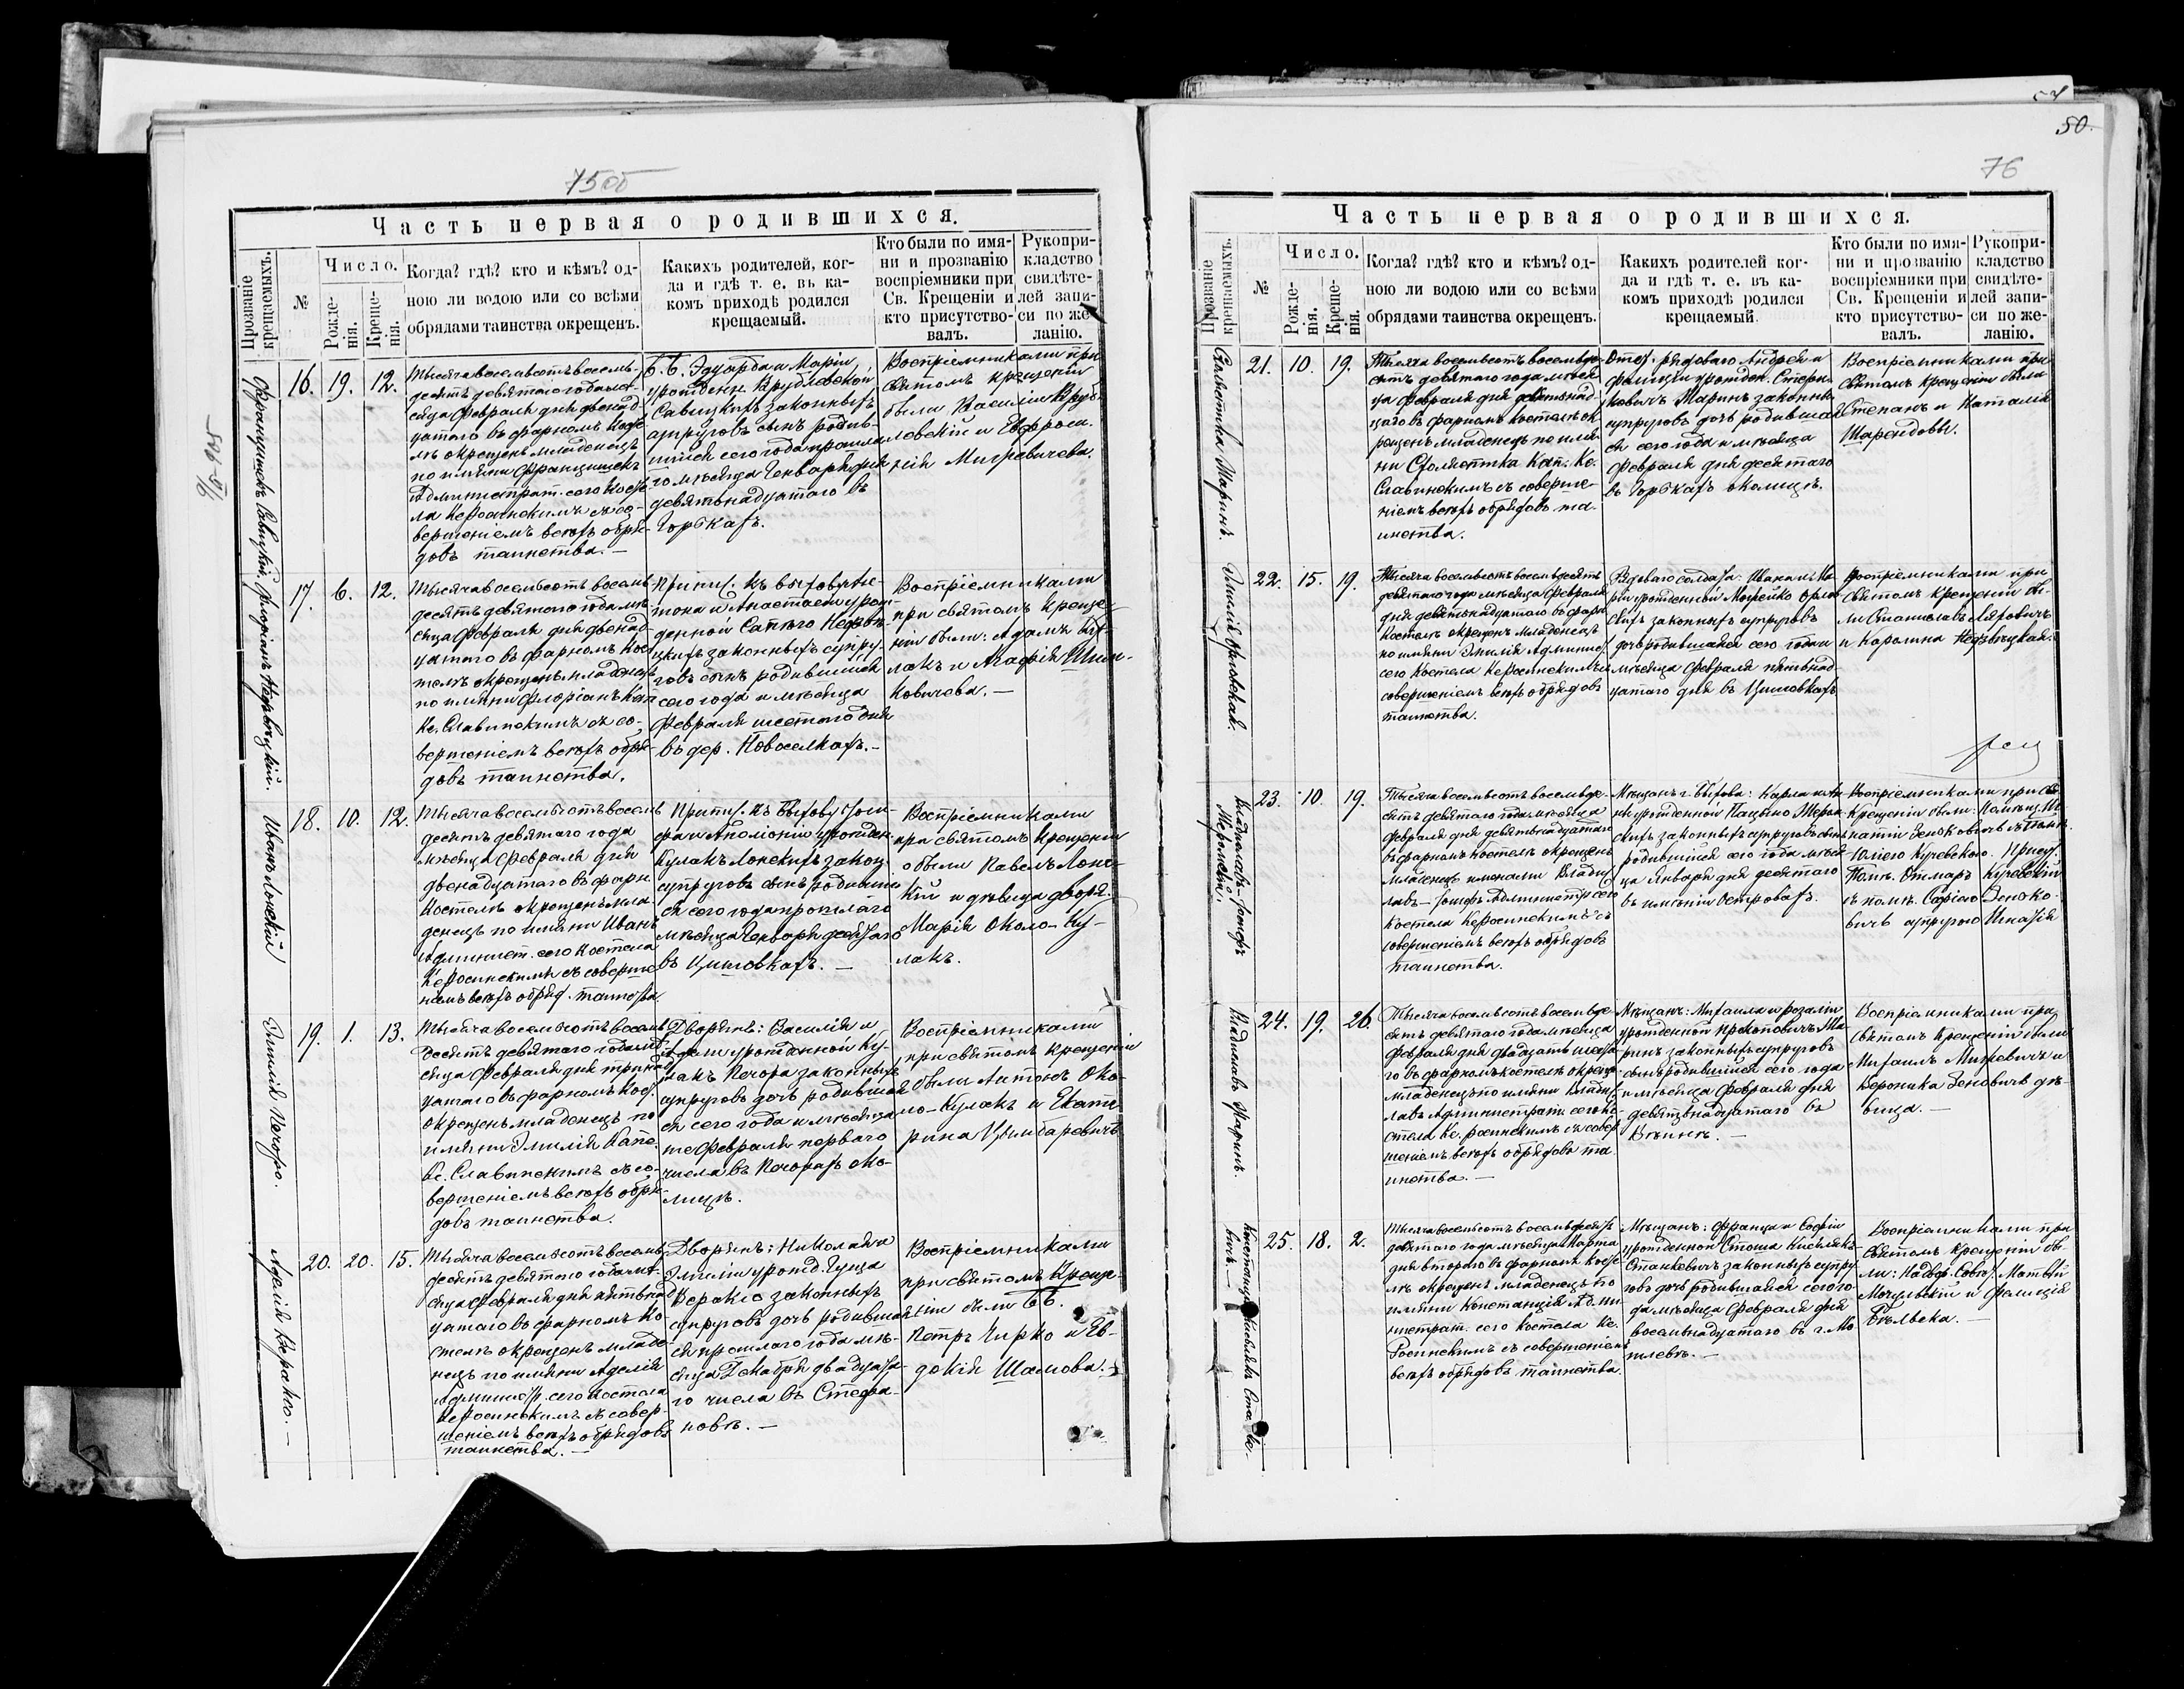 75об
Часть первая о родившихся.
Прозваніе крещаемыхъ.
№
Число.
Рожде-
нія.
Креще-
нія.
Когда? гдѣ? кто и кѣмъ? од-
ною ли водою или со всѣми
обрядами таинства окрещенъ.
Какихъ родителей, ког-
да и гдѣ т. е. въ ка-
комъ приходѣ родился
крещаемый.
Кто были по имя-
ни и прозванію
воспріемники при
Св. Крещеніи и
кто присутство-
валъ.
Рукопри-
кладство
свидѣте-
лей запи-
си по же-
ланію.
Францишекъ Савицкій.
16. 19. 12.
Тысяча восемьсотъ восемь-
десятъ девятаго года мѣ-
сяца Февраля дня двенад-
цатаго въ фарномъ косте-
лѣ окрещенъ младенецъ
по имяни Францишекъ
Администрат. сего косте
ла Кс Росинскимъ съ со-
вершеніемъ всѣхъ обря-
довъ таинства. —
Б. Б. Эдуарда и Маріи
урожден. Врублевской
Савицкихъ законныхъ
супруговъ сынъ родив-
шійся сего года прошла
го мѣсяца Генваря дня
девятьнадцатаго въ
Горбкахъ.
Воспріемниками при
святомъ крещеніи
были Василій Вруб-
левскій и Евфроси-
нія Мицкевичева.
Флоріанъ Недзвѣцкій.
17. 6. 12.
Тысяча восемьсотъ восемь-
десятъ девятаго года мѣ-
сяца Февраля дня двенад-
цатаго въ фарномъ кос-
телѣ окрещенъ младенецъ
по имяни Флоріанъ Кап
Кс. Славинскимъ съ со-
вершеніемъ всѣхъ обря-
довъ таинства.
Припис. къ Быхову Ан-
тона и Анастасіи урож-
денной Сапѣго Недзвѣ-
цкихъ законныхъ супру-
говъ сынъ родившійся
сего года и мѣсяца
Февраля шестого дня
въ дер. Новоселкахъ. —
Воспріемниками
при святомъ креще-
ніи были: Адамъ Ку-
лакъ и Агафія Шин-
ковичева. —
Иванъ Лонскій
18. 10. 12.
Тысяча восемьсотъ восемь
десятъ девятаго года
мѣсяца Февраля дня
двенадцатаго въ фарн.
костелѣ окрещенъ мла
денецъ по имяни Иванъ
Админист. сего костела
Кс Росинскимъ съ соверше
ніемъ всѣхъ обряд. таинства
Припис. къ Быхову Іоси-
фа и Аполіоніи урожден.
Кулакъ Лонскихъ закон.
супруговъ сынъ родивші
ся сего года прошлаго
мѣсяца Генваря десятаго
въ Цишовкахъ. —
Воспріемниками
при святомъ крещеніи
были Павелъ Лон-
кій и дѣвица дворя.
Марія Около-Ку-
лакъ.
Эмилія Печора.
19. 1. 13.
Тысяча восемьсотъ восемь
десятъ девятаго года мѣ
сяца Февраля дня тринад
цатаго въ фарномъ кос.
окрещенъ младенецъ по
имяни Эмилія Капе.
Кс. Славинскимъ съ со-
вершеніемъ всѣхъ обря-
довъ таинства.
Дворянъ: Василія и
урожденной Ку-
лакъ Печора законныхъ
супруговъ дочь родивша
ся сего года и мѣсяца
Февраля перваго
числа въ Печорахъ око-
лицѣ.
Воспріемниками
при святомъ крещеніи
были Антонъ Око-
ло-Кулакъ и Екате
рина Цымбаревичъ
Аделія Веракго. —
20. 20. 15.
Тысяча восемьсотъ восемь
десятъ девятаго года мѣ-
сяца Февраля дня пятьнад
цатаго въ фарномъ ко-
стелѣ окрещенъ младе-
нецъ по имяни Аделія
Админист. сего костела
Кс Росинскимъ съ совер-
шеніемъ всѣхъ обрядовъ
таинства. —
Дворянъ: Николая и
Эмиліи урожд. Гуща
Веракго законныхъ
супруговъ дочь родивша
ся прошлаго года мѣ-
сяца Декабря двадцата-
го числа въ Стефа-
новѣ. —
Воспріемниками
при святомъ креще-
ніи были ББ.
Петръ Чирко и Ев-
докія Шашова. —
50.
76
Часть первая о родившихся.
Прозваніе крещаемыхъ.
№
Число.
Рожде-
нія.
Креще-
нія.
Когда? гдѣ? кто и кѣмъ? од-
ною ли водою или со всѣми
обрядами таинства окрещенъ.
Какихъ родителей ког-
да и гдѣ т. е. въ ка-
комъ приходѣ родился
крещаемый.
Кто были по имя-
ни и прозванію
воспріемники при
Св. Крещеніи и
кто присутство-
валъ.
Рукопри-
кладство
свидѣте-
лей запи-
си по же-
ланію.
Маринъ.
21. 10. 19.
Тысяча восемьсотъ восемьде-
сятъ девятаго года мѣся
ца Февраля дня девятьнад-
цаго въ фарномъ костелѣ ок
рещенъ младенецъ по имя-
ни Кап. Кс.
Славинскимъ съ соверше-
ніемъ всѣхъ обрядовъ та-
инства.
Отст. рядоваго Андрея и
Фелиціи урожден.
Маринъ законны
супруговъ дочь родивша
ся сего года и мѣсяца
Февраля дня десятаго
въ Горбкахъ околицѣ.
Воспріемниками при
святомъ крещеніи были
Степанъ и Наталія
Шарендовы.
Эмилія Орловская.
22. 15. 19.
Тысяча восемьсотъ восемьдесятъ
девятаго года мѣсяца Февраля
дня девятьнадцатаго въ фарн.
костелѣ окрещенъ младенецъ
по имяни Эмилія Админис.
сего костела Кс Росинскимъ съ
совершеніемъ всѣхъ обрядовъ
таинства.
Рядоваго солдата: Ивана и Ма
ріи урожденной Мосейко Орло
скихъ законныхъ супруговъ
дочь родившаяся сего года и
мѣсяца Февраля пятьнад
цатаго дня въ Цишовкахъ
Воспріемниками при
святомъ крещеніи бы-
ли Станиславъ Ляховичъ
и Каролина Недзвѣцкая.
Владиславъ-Іосифъ
Жеромскій.
23. 10. 19.
Тысяча восемьсотъ восемьде-
сятъ девятаго года мѣсяца
Февраля дня девятьнадцатаго
въ фарномъ костелѣ окрещенъ
младенецъ именами Влади-
лавъ-Іосифъ Администр. сего
костела Кс Росинскимъ съ
совершеніемъ всѣхъ обрядовъ
таинства.
Мѣщанъ г. Быхова: Карла и Ан
ны урожденной Пацыно Жером
скихъ законныхъ супруговъ сынъ
родившійся сего года мѣся
ца Января дня десятаго
въ имѣніи Островахъ.
Воспріемниками при св.
крещеніи были: Помѣщ. Иг
натій Зенковичъ съ Пом.
Юліею Кучевскою. Присут.
Пом. Отмаръ Кучевскій
съ пом. Софіею Зенко-
вичъ супругою Игнатія
Владиславъ Маринъ.
24. 19. 26.
Тысяча восемьсотъ восемьде-
сятъ девятаго года мѣсяца
Февраля дня двадцать шеста
го въ фарномъ костелѣ окреще
младенецъ по имяни Влади
лавъ Администрат. сего ко-
стела Кс. Росинскимъ съ совер
шеніемъ всѣхъ обрядовъ та
инства. —
Мѣщанъ: Михаила и Розаліи
урожденной Прокоповичъ Ма
ринъ законныхъ супруговъ
сынъ родившійся сего года
и мѣсяца Февраля дня
девятьнадцатаго въ
Воспріемниками при
святомъ крещеніи были
Михаилъ Мицкевичъ и
Вероника Зеновичъ дѣ-
вица. —
Констанція Кисьлякъ Станке-
вичъ. —
25. 18. 2.
Тысяча восемьсотъ восемьдесятъ
девятаго года мѣсяца Марта
дня второго въ фарномъ косте-
лѣ окрещенъ младенецъ по
имяни Констанція Адми
нистрат. сего костела Кс.
Росинскимъ съ совершеніемъ
всѣхъ обрядовъ таинства.
Мѣщанъ: Франца и Софіи
урожденной Стоша Кисьлякъ-
Станкевичъ законныхъ супру
говъ дочь родившаяся сего го
да мѣсяца Февраля дня
восемьнадцатаго въ г. Мо
гилевѣ. —
Воспріемниками при
святомъ крещеніи бы-
ли: Надвор. Совѣт. Матвѣй
Мочульскій и Фелиція
Бѣльска. —